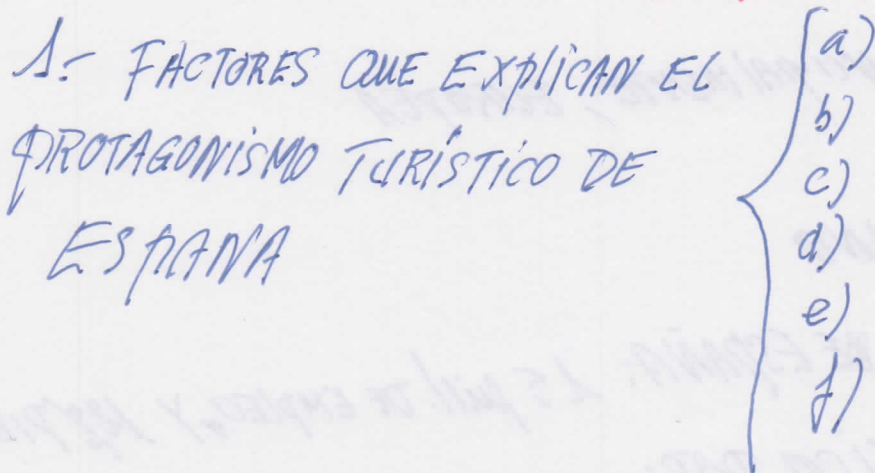 1.- FACTORES QUE EXPLICAN EL
PROTAGONISMO TURÍSTICO DE
ESPAÑA
a)
b)
c)
d)
e)
f)